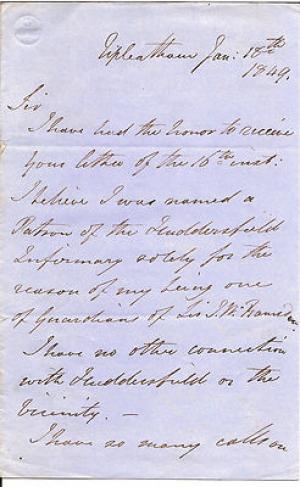 Upleatham Jan: 18th
1849.
Sir
I have had the honor to receive
your letter of the 16th inst:
I believe I was named a
Patron of the Huddersfield
Infirmary solely for the
reason of my being one
of Guardians of Sir J. W. Ramsden.
I have no other connection
with Huddersfield or the
Vicinity. —
I have so many calls on